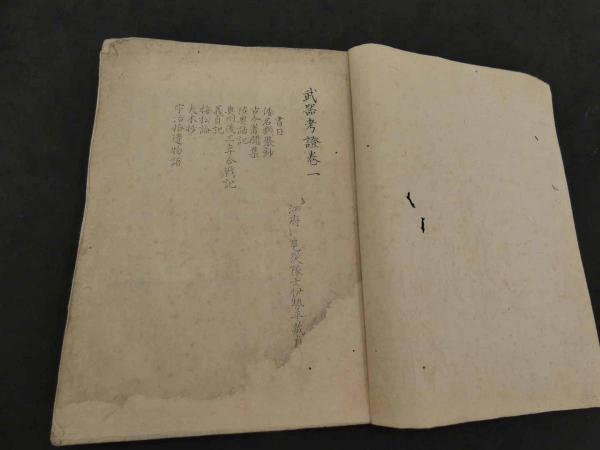 武器考證卷一
書目
倭名類聚鈔
古今著聞集
陸奥話記
奥州後三年合戦記
義貞記
梅松論
夫木抄
宇治拾遺物語